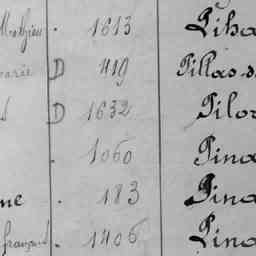 Mathieu . 1613 Piha
D 419 Pillas-d
D 1632 Pilor
. 1060 Pina
ne . 183 Pina
françois . 1406 Pina